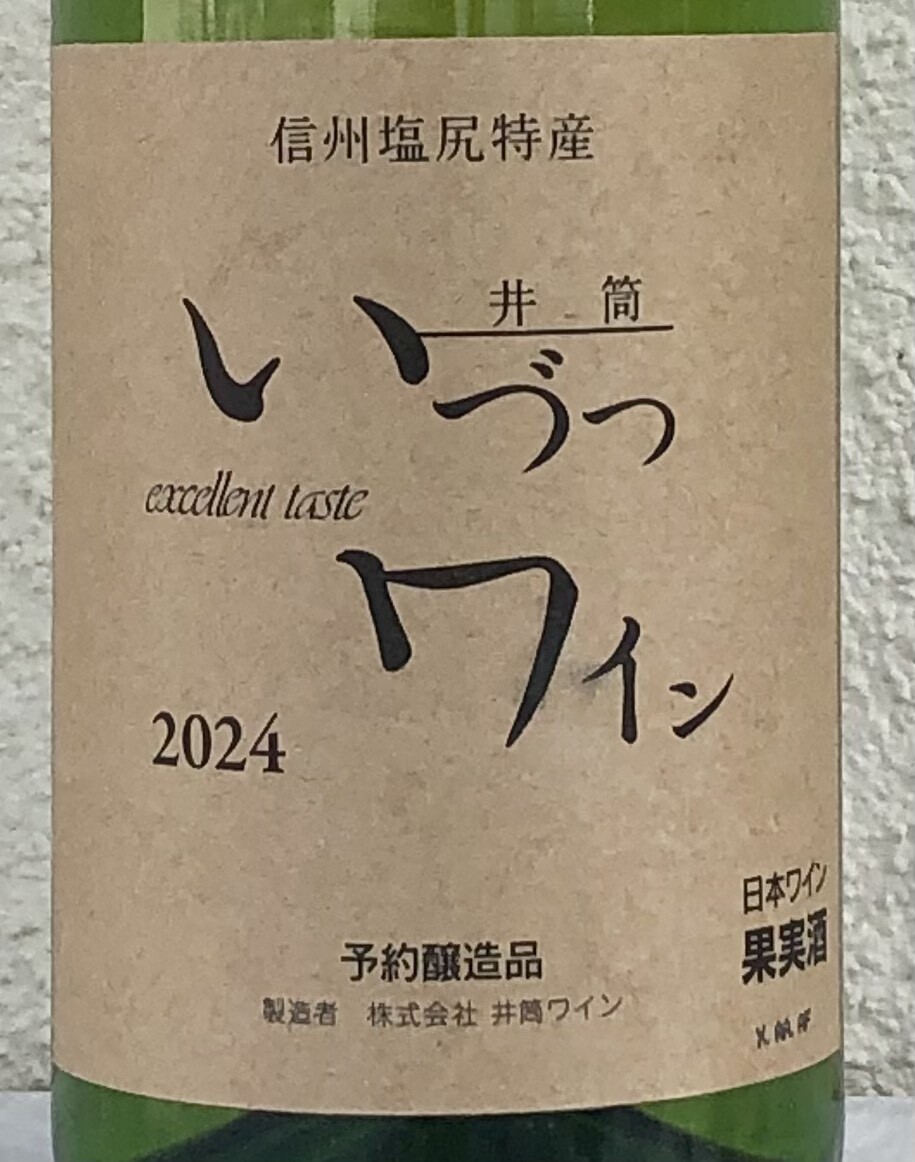 信州塩尻特産
井筒
いづつ
excellent taste
ワイン
2024
日本ワイン
果実酒
予約醸造品
製造者 株式会社 井筒ワイン